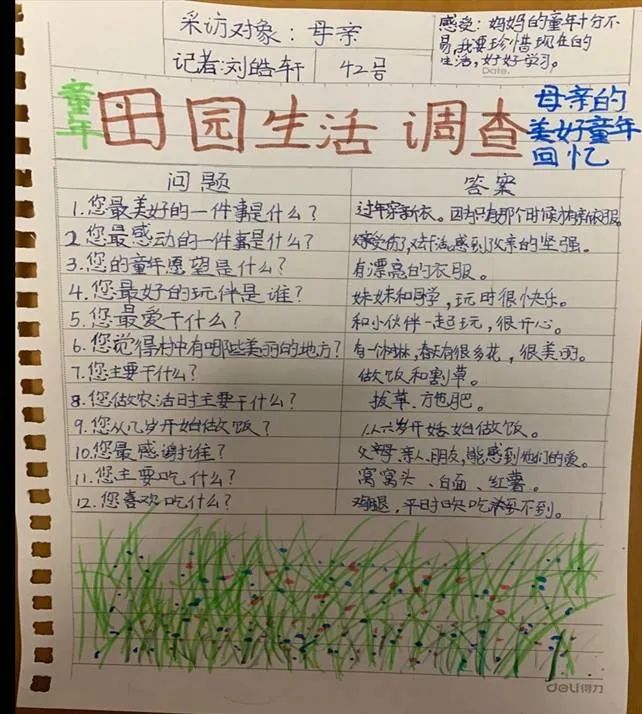 采访对象：母亲
感受：妈妈的童年十分不
易，我要珍惜现在的
生活，好好学习。
Date.
记者：刘皓轩
42号
童年
田园生活调查
母亲的
美好童年
回忆
问题
答案
1.您最美好的一件事是什么？
过年穿新衣。因为只有那个时候才有新衣服。
2.您最感动的一件事是什么？
受伤了，感到父亲的坚强。
3.您的童年愿望是什么？
有漂亮的衣服。
4.您最好的玩伴是谁？
妹妹和同学，玩时很快乐。
5.您最爱干什么？
和小伙伴一起玩，很开心。
6.您觉得村中有哪些美丽的地方？
有一个树林，春天有很多花，很美丽。
7.您主要干什么？
做饭和割草。
8.您做农活时主要干什么？
拔草、施肥。
9.您从几岁开始做饭？
从六岁开始做饭。
10.您最感谢谁？
父母、亲人、朋友，能感到他们的爱。
11.您主要吃什么？
窝窝头、白面、红薯。
12.您喜欢吃什么？
鸡腿，平时吃不到。
deli得力